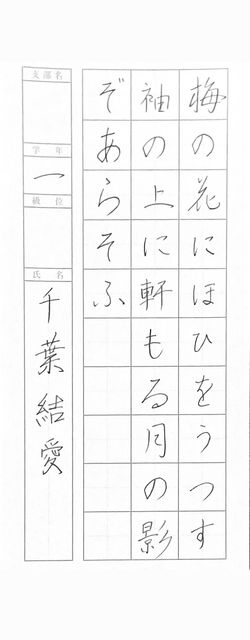 梅の花にほひをうつす
袖の上に軒もる月の影
ぞあらそふ
支部名
学年
一
級位
氏名
千葉結愛